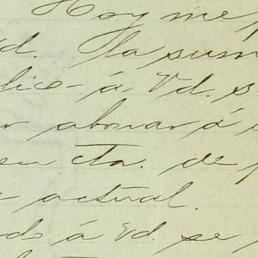 Hoy me
d. la sum
lico á Vd. s
r abonar á
en cta. de
actual.
do á Vd. se